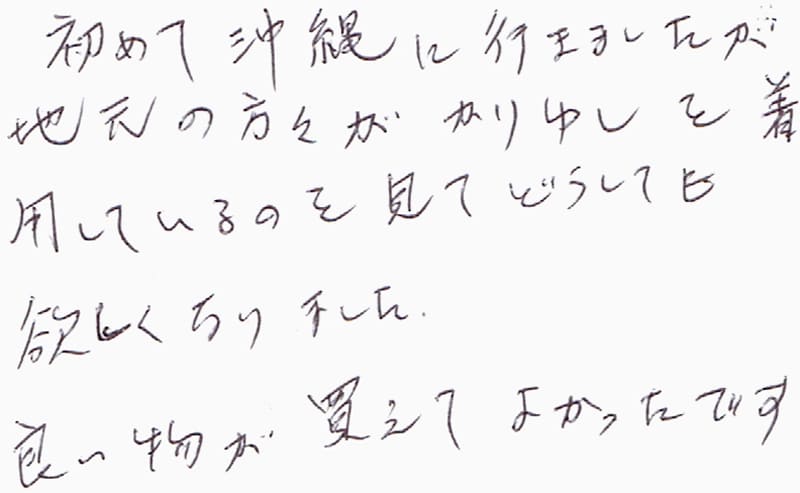 初めて沖縄に行きましたが
地元の方々がかりゆしを着
用しているのを見てどうしても
欲しくなりました.
良い物が買えてよかったです